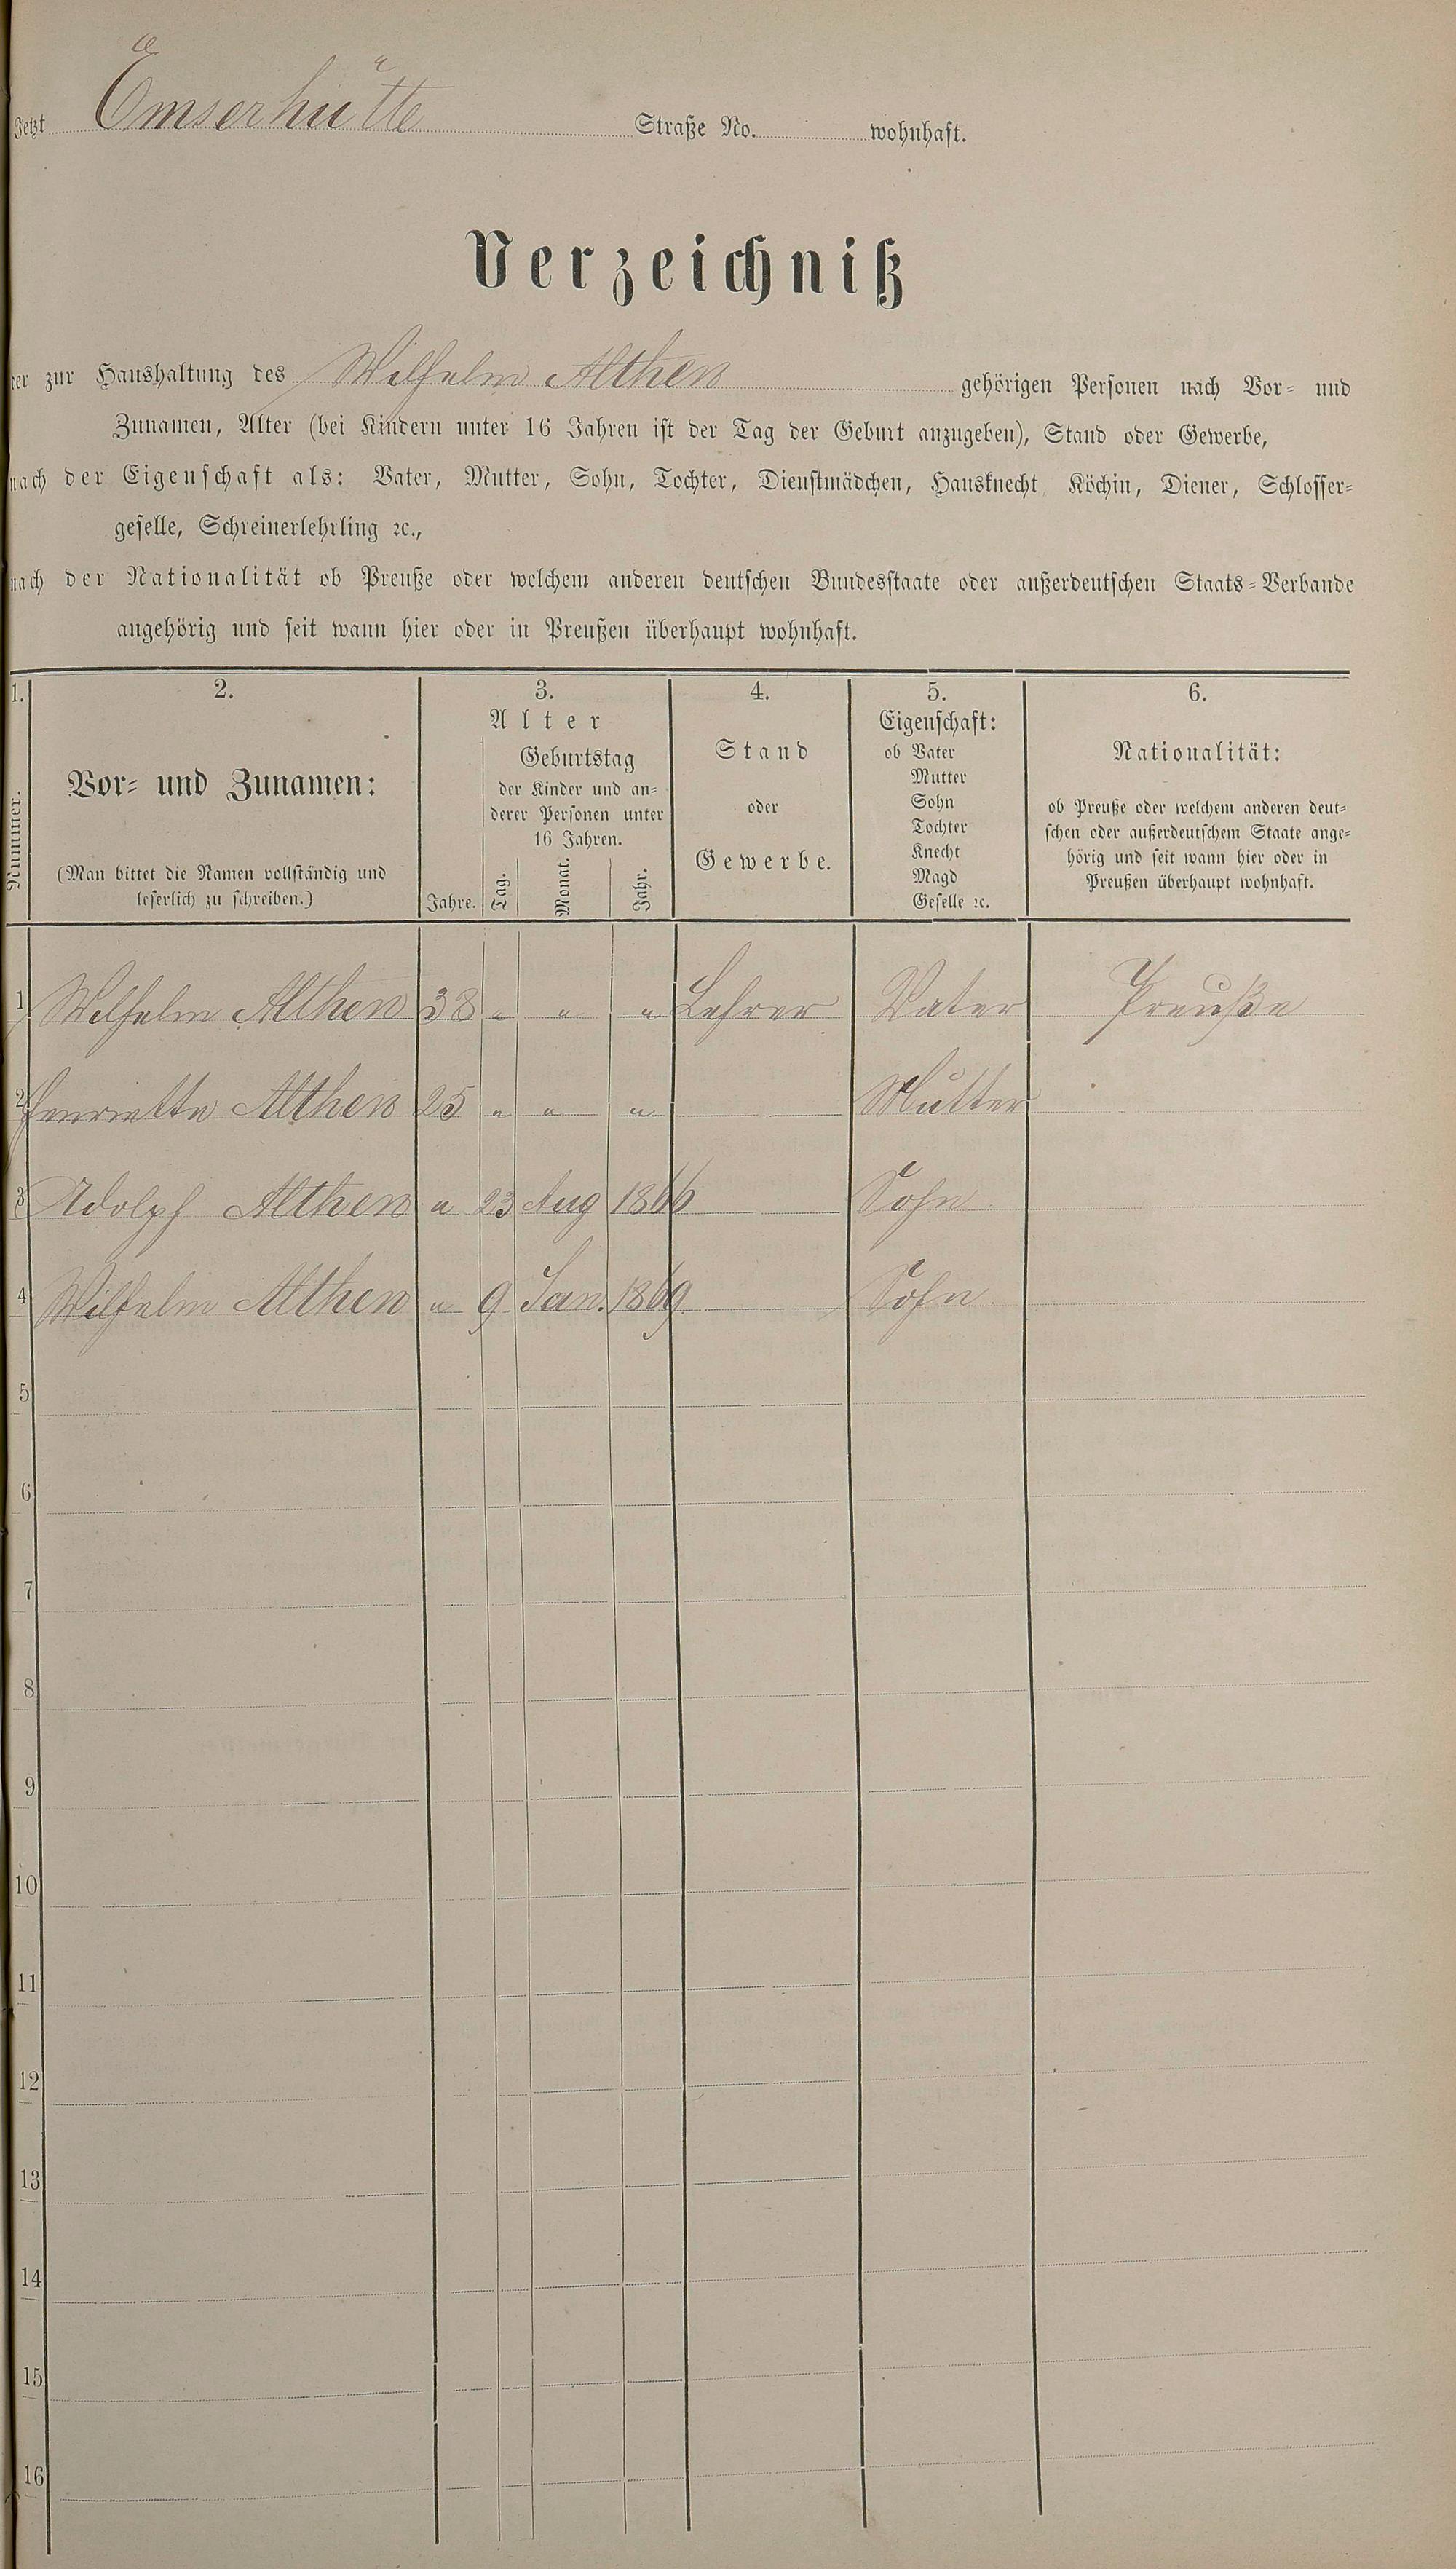 Jetzt Emserhütte Straße No. wohnhaft.
Verzeichniß
der zur Haushaltung des Wilhelm Althen gehörigen Personen nach Vor- und
Zunamen, Alter (bei Kindern unter 16 Jahren ist der Tag der Geburt anzugeben), Stand oder Gewerbe,
nach der Eigenschaft als: Vater, Mutter, Sohn, Tochter, Dienstmädchen, Hausknecht Köchin, Diener, Schlosser-
geselle, Schreinerlehrling ꝛc.,
nach der Nationalität ob Preuße oder welchem anderen deutschen Bundesstaate oder außerdeutschen Staats-Verbande
angehörig und seit wann hier oder in Preußen überhaupt wohnhaft.
1. 2. 3. 4. 5. 6.
Nummer.
Vor- und Zunamen:
(Man bittet die Namen vollständig und
leserlich zu schreiben.)
Alter
Jahre.
Geburtstag
der Kinder und an-
derer Personen unter
16 Jahren.
Tag. Monat. Jahr.
Stand
oder
Gewerbe.
Eigenschaft:
ob Vater
Mutter
Sohn
Tochter
Knecht
Magd
Geselle ꝛc.
Nationalität:
ob Preuße oder welchem anderen deut-
schen oder außerdeutschem Staate ange-
hörig und seit wann hier oder in
Preußen überhaupt wohnhaft.
1 Wilhelm Althen 38 " " " Lehrer Vater Preuße
2 Henriette Althen 25 " " " Mutter
3 Adolph Althen " 23 Aug 1866 Sohn
4 Wilhelm Althen " 9 Jan. 1869 Sohn
5
6
7
8
9
10
11
12
13
14
15
16